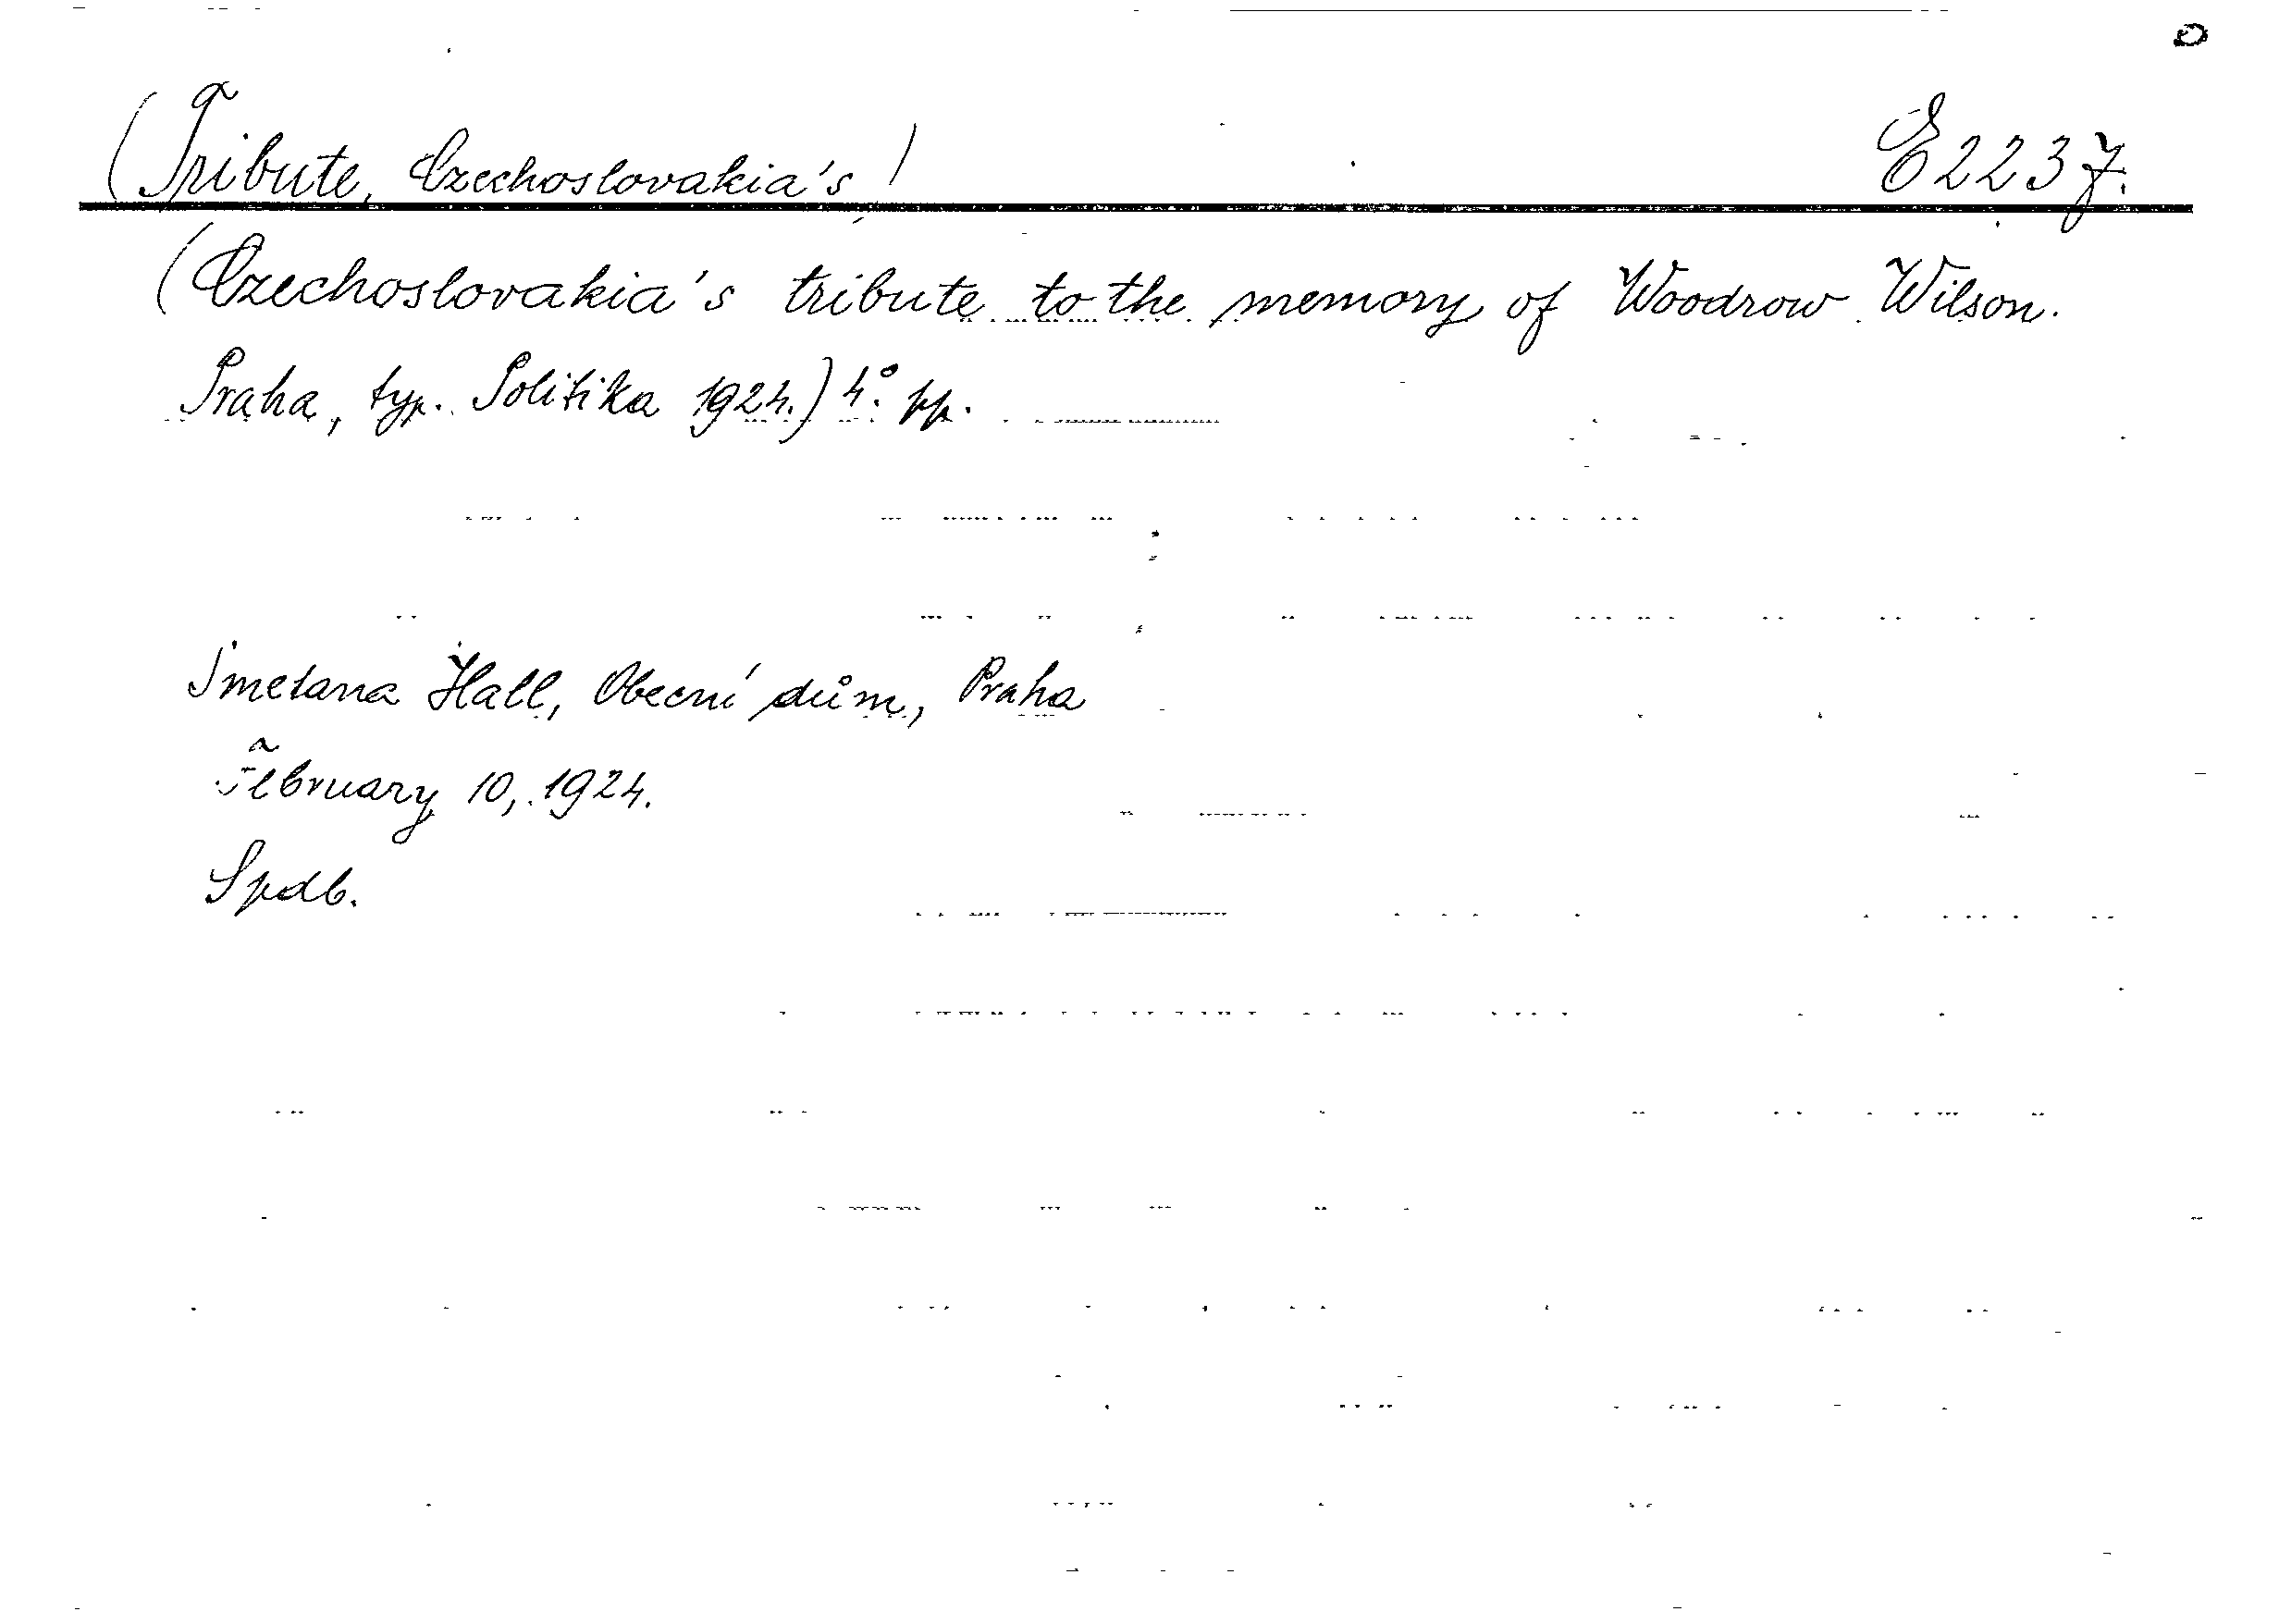 (Tribute, Czechoslovakia's) E 2237.
(Czechoslovakia's tribute to the memory of Woodrow Wilson.
Praha, typ. Politika 1924.) 4° pp.
Smetana Hall, Obecní dům, Praha
February 10, 1924.
Spdb.